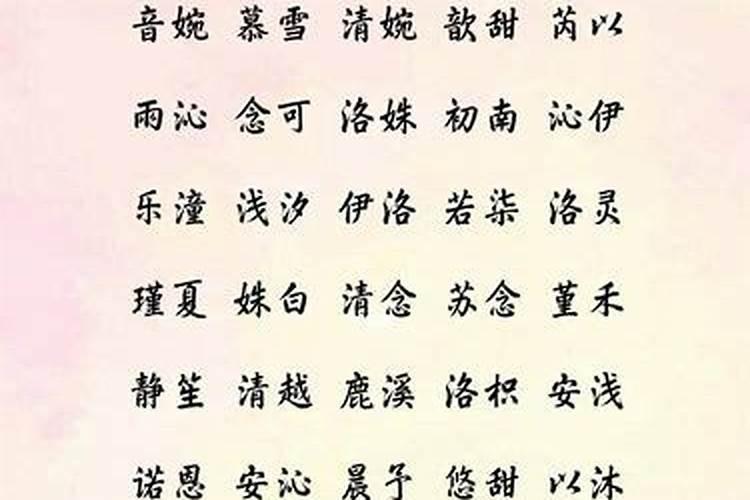 音婉 慕雪 清婉 歆甜 芮以
雨沁 念可 洛姝 初南 沁伊
乐潼 浅汐 伊洛 若柒 洛灵
瑾夏 姝白 清念 苏念 堇禾
静笙 清越 鹿溪 洛枳 安浅
诺恩 安沁 晨予 悠甜 以沐